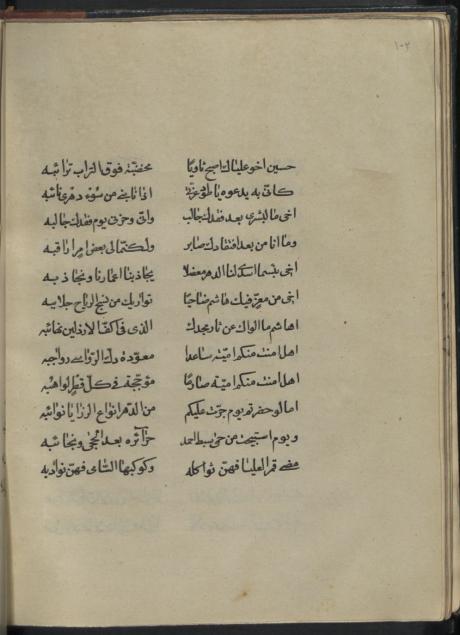 ١٠٢
حسين اخو علياك اصبح ثاويا مخضبة فوق التراب ترائبه
كافى به يدعوه اذا نابنى من سوء دهرى نائبه
اخى ما لبشرى بعد فقدك جالب وانى وحزنى يوم فقدك جالبه
وما انا من بعد افتقادك صابر ولكنما لى بعض امر اراقبه
اخى بئسما اسدى لنا الدهر معضلا يجاذبنا اعمارنا ونجاذبه
اخى من معزٍ فيك هاشم ضاحيًا تواريك من نسج الرياح جلاببه
اهاشم ما الواك عن ثار مجدك الذى فى اكف الارذلين نهائبه
اهل امنت منكم امية ساعدا معودة دك الرواسى رواجبه
اهل امنت منكم امية صارمًا مؤججة فى كل قطر لواهبه
اما لو حضرتم يوم جرّت عليكم من الدهر انواع الرزايا نوائبه
ويوم استبيحت من حمى سبط احمد حرائره بعد الحجى ونجائبه
مضى قمر العليا فهن ثواكله وكوكبها السامى فهن نوادبه